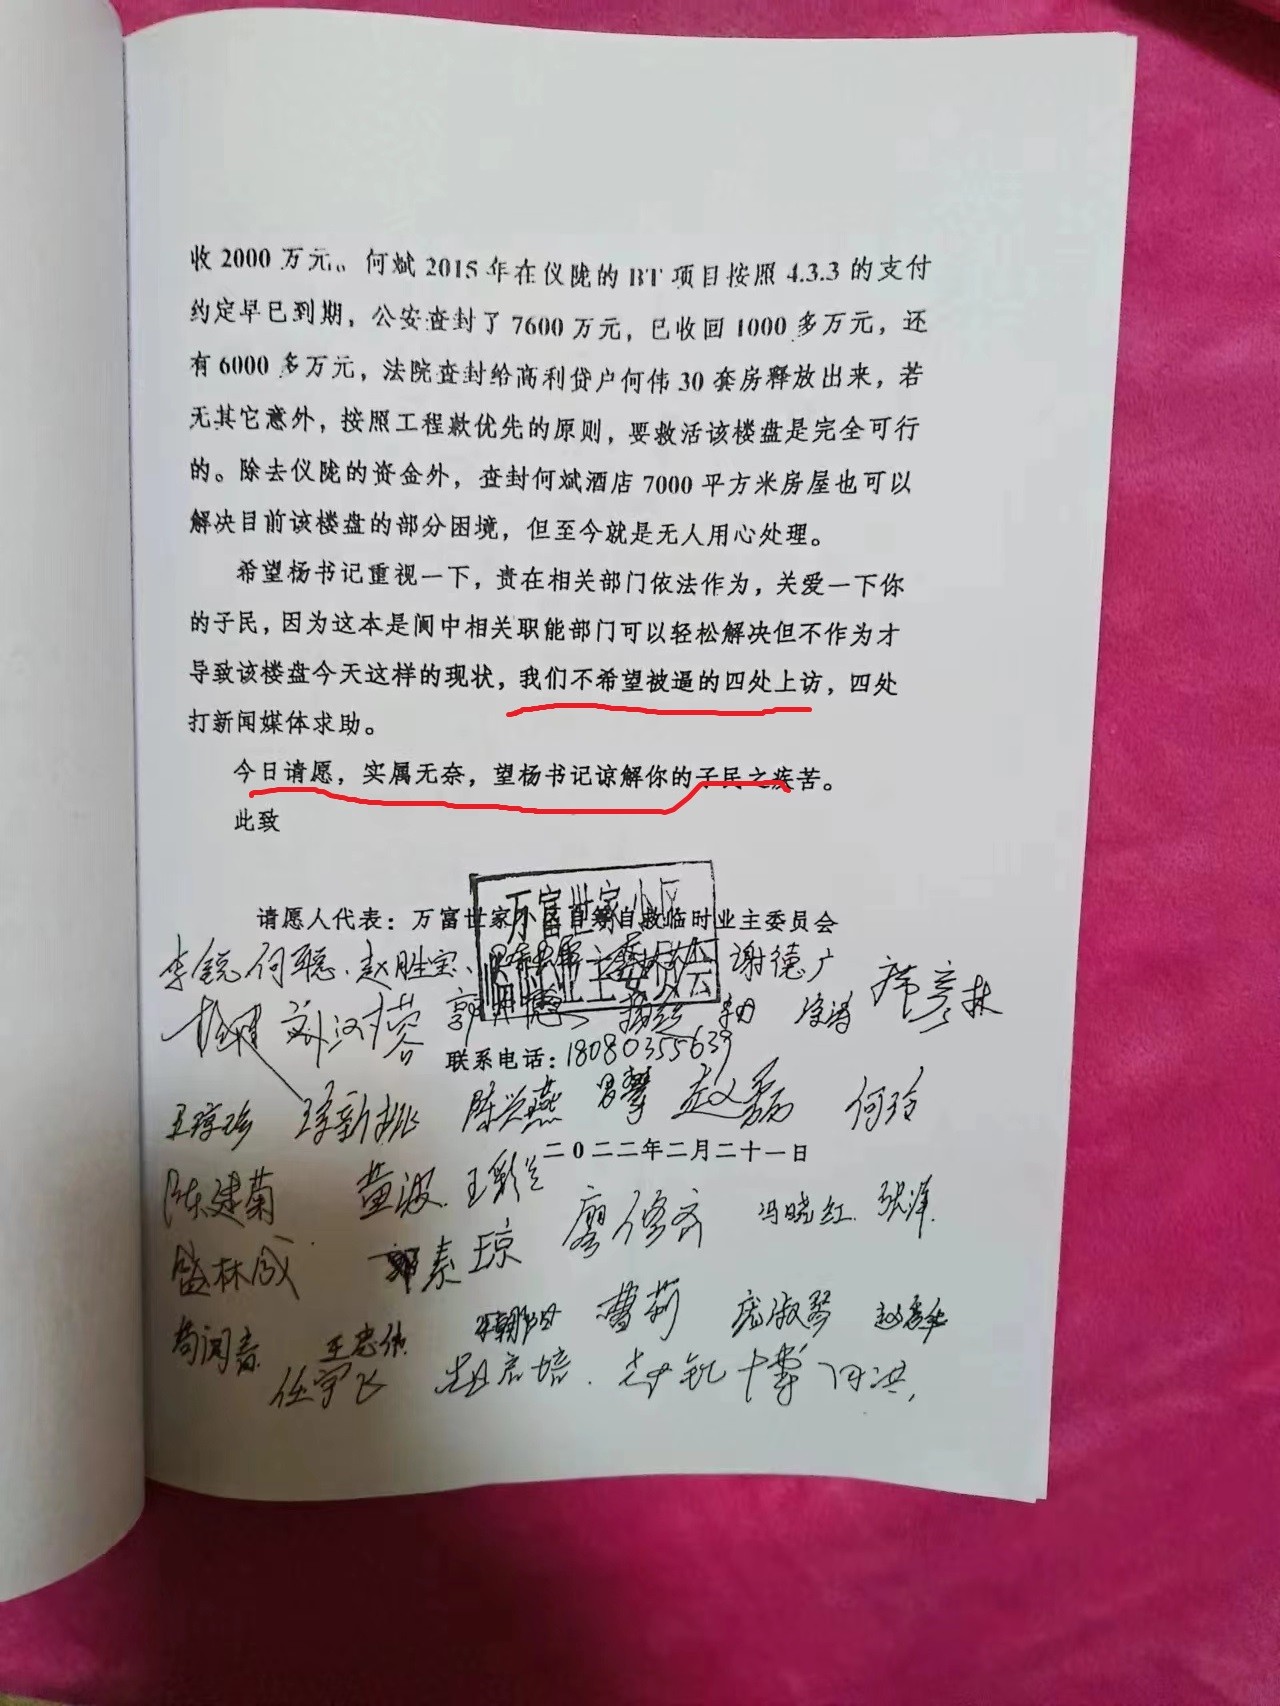 收 2000 万元。何斌 2015 年在仪陇的 BT 项目按照 4.3.3 的支付
约定早已到期，公安查封了 7600 万元，已收回 1000 多万元，还
有 6000 多万元，法院查封给高利贷户何伟 30 套房释放出来，若
无其它意外，按照工程款优先的原则，要救活该楼盘是完全可行
的。除去仪陇的资金外，查封何斌酒店 7000 平方米房屋也可以
解决目前该楼盘的部分困境，但至今就是无人用心处理。
希望杨书记重视一下，责在相关部门依法作为，关爱一下你
的子民，因为这本是阆中相关职能部门可以轻松解决但不作为才
导致该楼盘今天这样的现状，我们不希望被逼的四处上访，四处
打新闻媒体求助。
今日请愿，实属无奈，望杨书记谅解你的子民之疾苦。
此致
万富世家小区
请愿人代表：万富世家小区自筹自救临时业主委员会
临时业主委员会
李锐 何聪 赵胜宝 谢德广
刘汉蓉
联系电话：18080355639
王琼珍 陈兴燕 赵磊 何玲
二〇二二年二月二十一日
陈建菊 黄波 王彩兰
廖修齐 冯晓红 张萍
盛林成 郭素琼
苟润香 王忠伟 曹莉 庞淑琴
任宇飞 赵启培 何洪